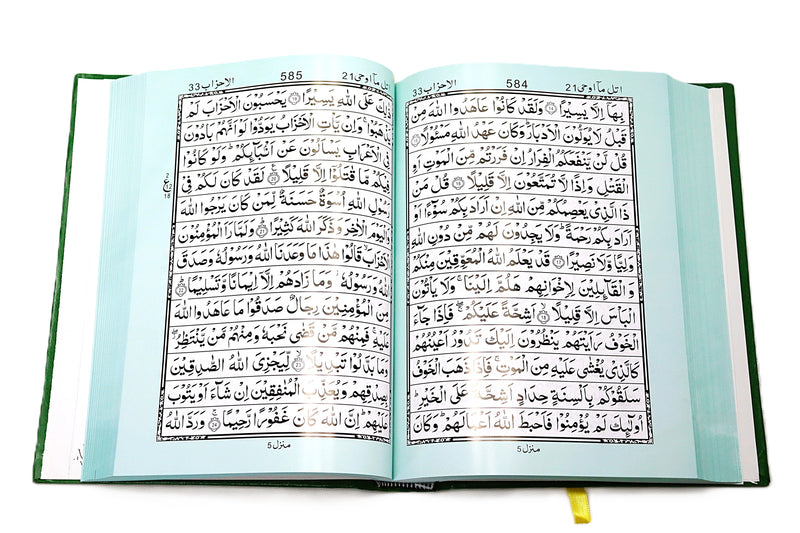 اتل مآاوحی 21
584
الاحزاب 33
بِهَاۤ اِلَّا يَسِيْرًا ﴿۱۴﴾ وَلَقَدْ كَانُوْا عَاهَدُوا اللّٰهَ مِنْ
قَبْلُ لَا يُوَلُّوْنَ الْاَدْبَارَ ؕ وَكَانَ عَهْدُ اللّٰهِ مَسْـُٔوْلًا ﴿۱۵﴾
قُلْ لَّنْ يَّنْفَعَكُمُ الْفِرَارُ اِنْ فَرَرْتُمْ مِّنَ الْمَوْتِ اَوِ
الْقَتْلِ وَاِذًا لَّا تُمَتَّعُوْنَ اِلَّا قَلِيْلًا ﴿۱۶﴾ قُلْ مَنْ
ذَا الَّذِيْ يَعْصِمُكُمْ مِّنَ اللّٰهِ اِنْ اَرَادَ بِكُمْ سُوْٓءًا اَوْ
اَرَادَ بِكُمْ رَحْمَةً ؕ وَلَا يَجِدُوْنَ لَهُمْ مِّنْ دُوْنِ اللّٰهِ
وَلِيًّا وَّلَا نَصِيْرًا ﴿۱۷﴾ قَدْ يَعْلَمُ اللّٰهُ الْمُعَوِّقِيْنَ مِنْكُمْ
وَالْقَآئِلِيْنَ لِاِخْوَانِهِمْ هَلُمَّ اِلَيْنَا ۚ وَلَا يَاْتُوْنَ
الْبَاْسَ اِلَّا قَلِيْلًا ﴿۱۸﴾ اَشِحَّةً عَلَيْكُمْ ۚ فَاِذَا جَآءَ
الْخَوْفُ رَاَيْتَهُمْ يَنْظُرُوْنَ اِلَيْكَ تَدُوْرُ اَعْيُنُهُمْ
كَالَّذِيْ يُغْشٰى عَلَيْهِ مِنَ الْمَوْتِ ۚ فَاِذَا ذَهَبَ الْخَوْفُ
سَلَقُوْكُمْ بِاَلْسِنَةٍ حِدَادٍ اَشِحَّةً عَلَى الْخَيْرِ ؕ
اُولٰٓئِكَ لَمْ يُؤْمِنُوْا فَاَحْبَطَ اللّٰهُ اَعْمَالَهُمْ ؕ وَكَانَ
منزل 5
اتل مآاوحی 21
585
الاحزاب 33
ذٰلِكَ عَلَى اللّٰهِ يَسِيْرًا ﴿۱۹﴾ يَحْسَبُوْنَ الْاَحْزَابَ لَمْ
يَذْهَبُوْا ۚ وَاِنْ يَّاْتِ الْاَحْزَابُ يَوَدُّوْا لَوْ اَنَّهُمْ بَادُوْنَ
فِى الْاَعْرَابِ يَسْاَلُوْنَ عَنْ اَنْۢبَآئِكُمْ ؕ وَلَوْ كَانُوْا
فِيْكُمْ مَّا قٰتَلُوْۤا اِلَّا قَلِيْلًا ﴿۲۰﴾ لَقَدْ كَانَ لَكُمْ فِيْ
رَسُوْلِ اللّٰهِ اُسْوَةٌ حَسَنَةٌ لِّمَنْ كَانَ يَرْجُوا اللّٰهَ
وَالْيَوْمَ الْاٰخِرَ وَذَكَرَ اللّٰهَ كَثِيْرًا ﴿۲۱﴾ وَلَمَّا رَاَ الْمُؤْمِنُوْنَ
الْاَحْزَابَ ۙ قَالُوْا هٰذَا مَا وَعَدَنَا اللّٰهُ وَرَسُوْلُهٗ وَصَدَقَ
اللّٰهُ وَرَسُوْلُهٗ ۫ وَمَا زَادَهُمْ اِلَّاۤ اِيْمَانًا وَّتَسْلِيْمًا ﴿۲۲﴾
مِنَ الْمُؤْمِنِيْنَ رِجَالٌ صَدَقُوْا مَا عَاهَدُوا اللّٰهَ
عَلَيْهِ ۚ فَمِنْهُمْ مَّنْ قَضٰى نَحْبَهٗ وَمِنْهُمْ مَّنْ يَّنْتَظِرُ ۖ
وَمَا بَدَّلُوْا تَبْدِيْلًا ﴿۲۳﴾ لِّيَجْزِيَ اللّٰهُ الصّٰدِقِيْنَ
بِصِدْقِهِمْ وَيُعَذِّبَ الْمُنٰفِقِيْنَ اِنْ شَآءَ اَوْ يَتُوْبَ
عَلَيْهِمْ ؕ اِنَّ اللّٰهَ كَانَ غَفُوْرًا رَّحِيْمًا ﴿۲۴﴾ وَرَدَّ اللّٰهُ
منزل 5